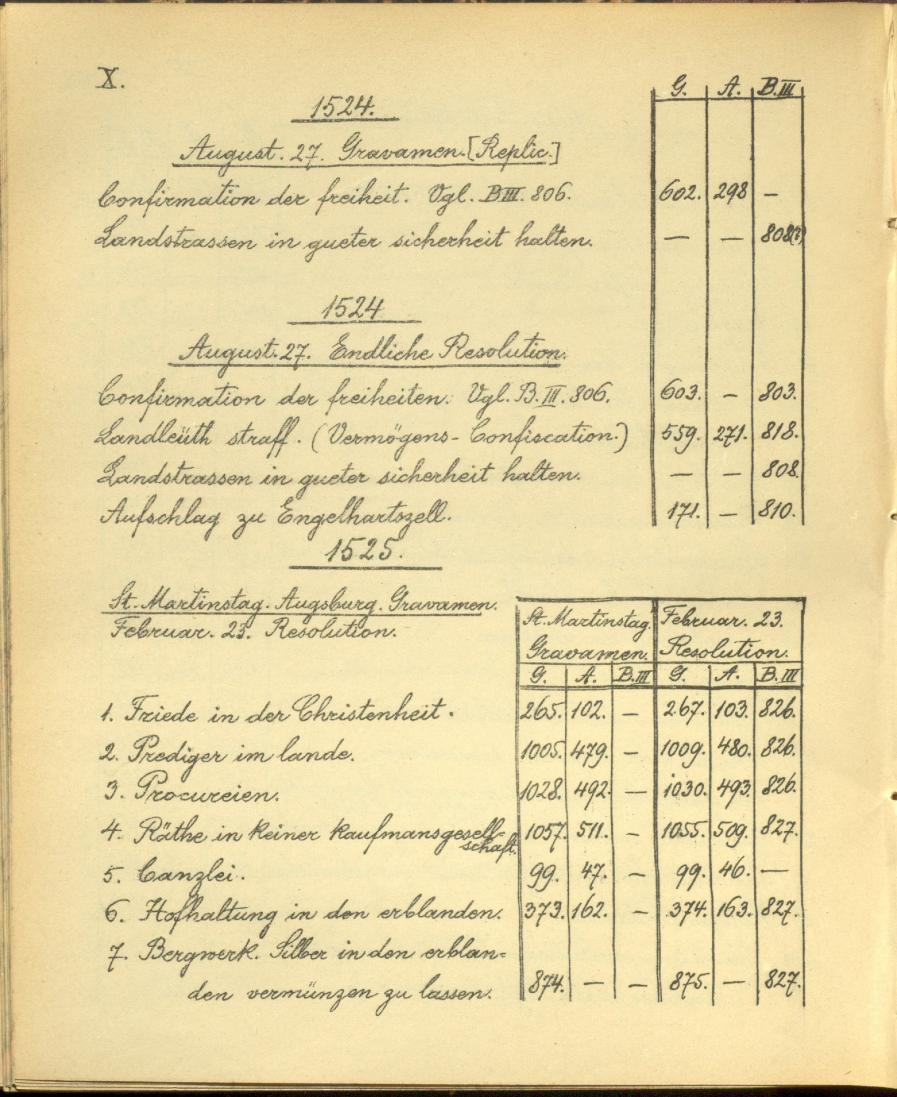 X.
G. A. B.III
1524.
August. 27. Gravamen. [Replic.]
Confirmation der freiheit. Vgl. B III. 806. 602. 298 —
Landstrassen in gueter sicherheit halten. — — 808(?)
1524
August. 27. Endliche Resolution.
Confirmation der freiheiten. Vgl. B. III. 806. 603. — 803.
Landleüth straff. (Vermögens-Confiscation.) 559. 271. 818.
Landstrassen in gueter sicherheit halten. — — 808.
Aufschlag zu Engelhartszell. 171. — 810.
1525.
St. Martinstag. Augsburg. Gravamen.
Februar. 23. Resolution.
St. Martinstag. Februar. 23.
Gravamen. Resolution.
G. A. B.III G. A. B.III
1. Friede in der Christenheit. 265. 102. — 267. 103. 826.
2. Prediger im lande. 1005. 479. — 1009. 480. 826.
3. Procureien. 1028. 492. — 1030. 493. 826.
4. Räthe in keiner kaufmansgesell= 1057. 511. — 1055. 509. 827.
schaft.
5. Canzlei. 99. 47. — 99. 46. —
6. Hofhaltung in den erblanden. 373. 162. — 374. 163. 827.
7. Bergwerk. Silber in den erblan=
den vermünzen zu lassen. 874. — — 875. — 827.